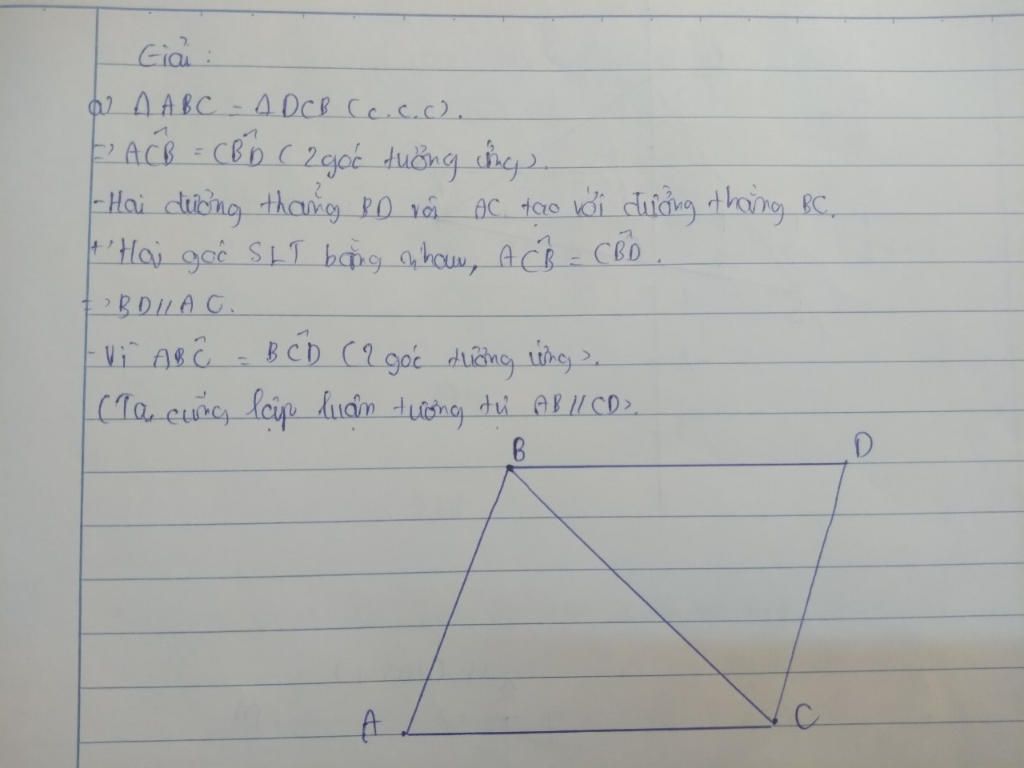 Giải :
a) ΔABC = ΔDCB (c.c.c).
=> AĈB = CB̂D (2 góc tưởng ứng).
- Hai đưởng thẳng BD với AC tạo với đưởng thẳng BC.
+ Hai góc SLT bằng nhau, AĈB = CB̂D.
=> BD//AC.
- Vì AB̂C = BĈD (2 góc tưởng ứng).
(Ta cũng lập luận tương tự AB//CD).
B D
A C